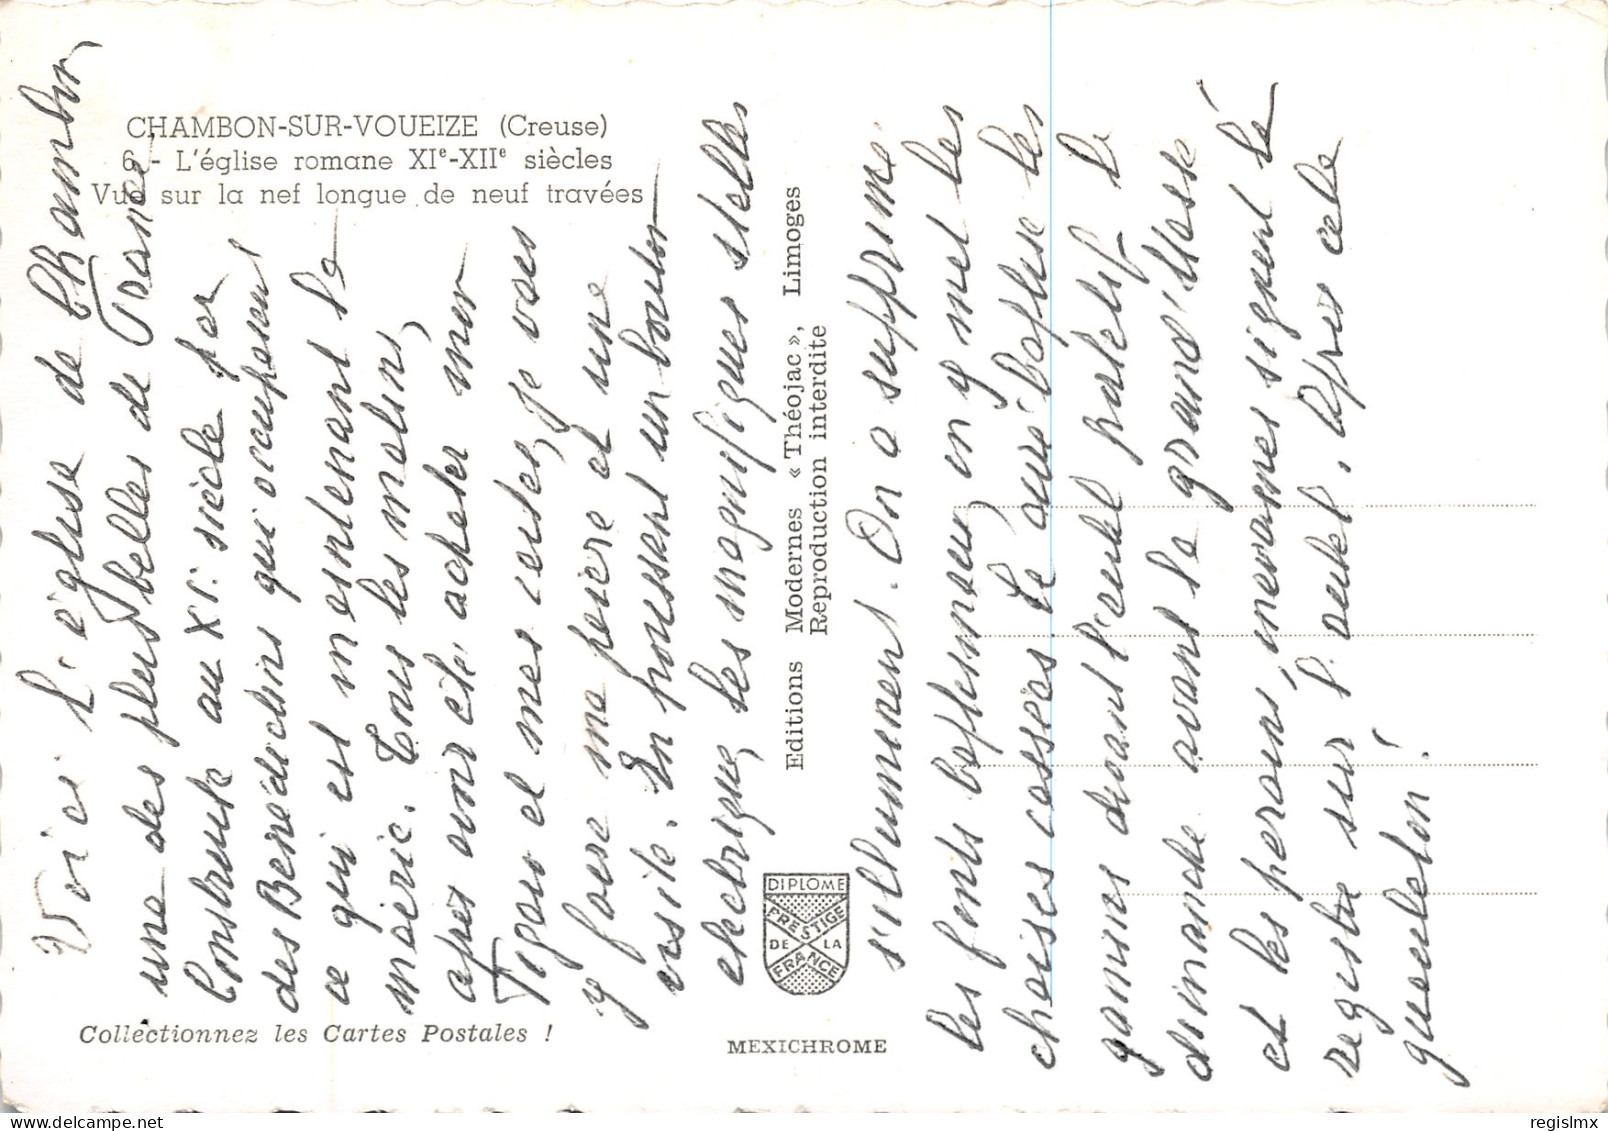 CHAMBON-SUR-VOUEIZE (Creuse)
6 - L'église romane XIe-XIIe siècles
Vue sur la nef longue de neuf travées
Voici l'église de Chambon
une des plus belles de France,
Construite au XIe siècle par
des Bénédictins qui occupaient
ce qui est maintenant la
mairie. Tous les matins,
après avoir été acheter mon
Figaro et mes cartes, je vais
y faire ma prière et une
visite. En poussant un bouton
électrique, les magnifiques stalles
s'illuminent. On a supprimé
les fonts baptismaux, on y met les
chaises cassées. Le curé baptise les
gamins devant l'autel portatif le
dimanche avant la grand'Messe
et les parrains, marraines signent le
registre sur l'autel. Après cela
gueuleton!
Editions Modernes «Théojac», Limoges
Reproduction interdite
DIPLOME
PRESTIGE
DE LA
FRANCE
Collectionnez les Cartes Postales !
MEXICHROME
regislmx